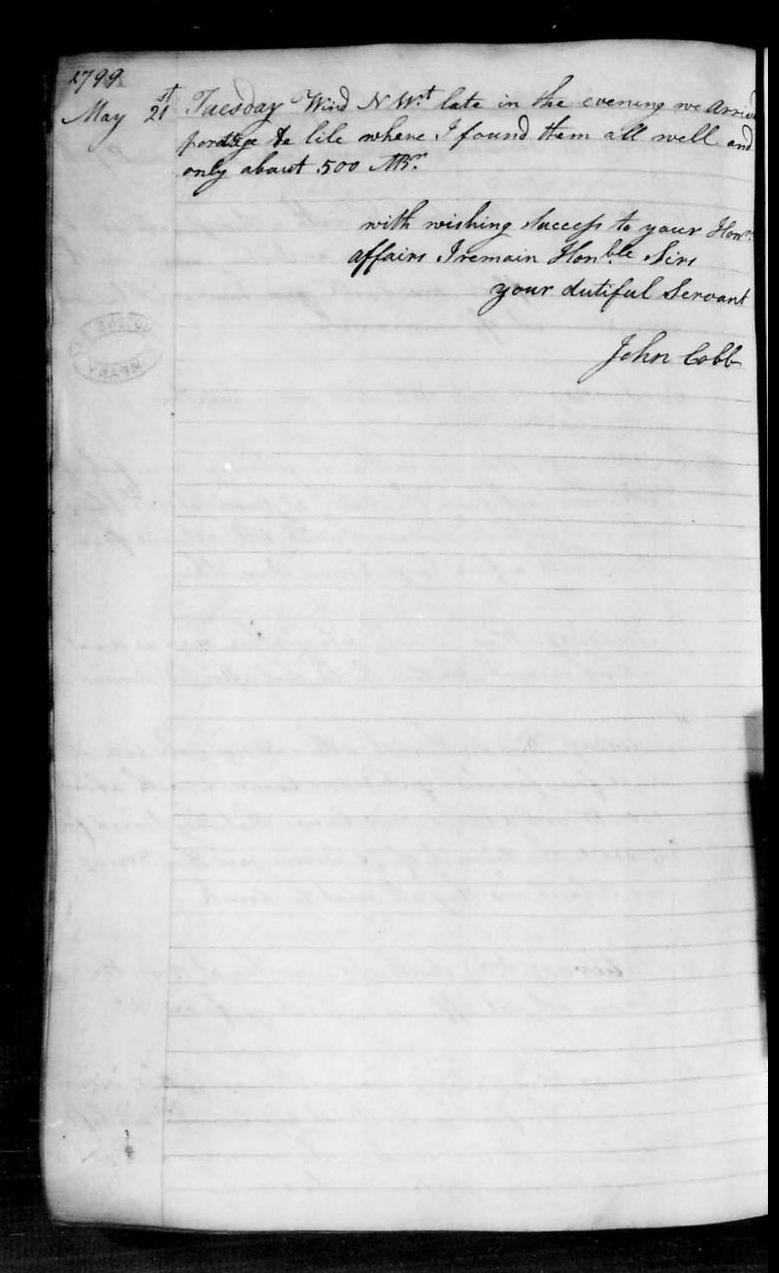 1799
May 21st Tuesday Wind N Wt late in the evening we Arrived
portage de lile where I found them all well and
only about 500 MBr.
with wishing success to your Honrs
affairs I remain Honble Sirs
your dutiful Servant
John Cobb